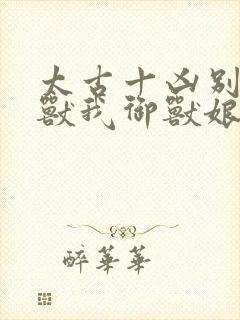 太古十凶别
獸我御獸娘
醉華華